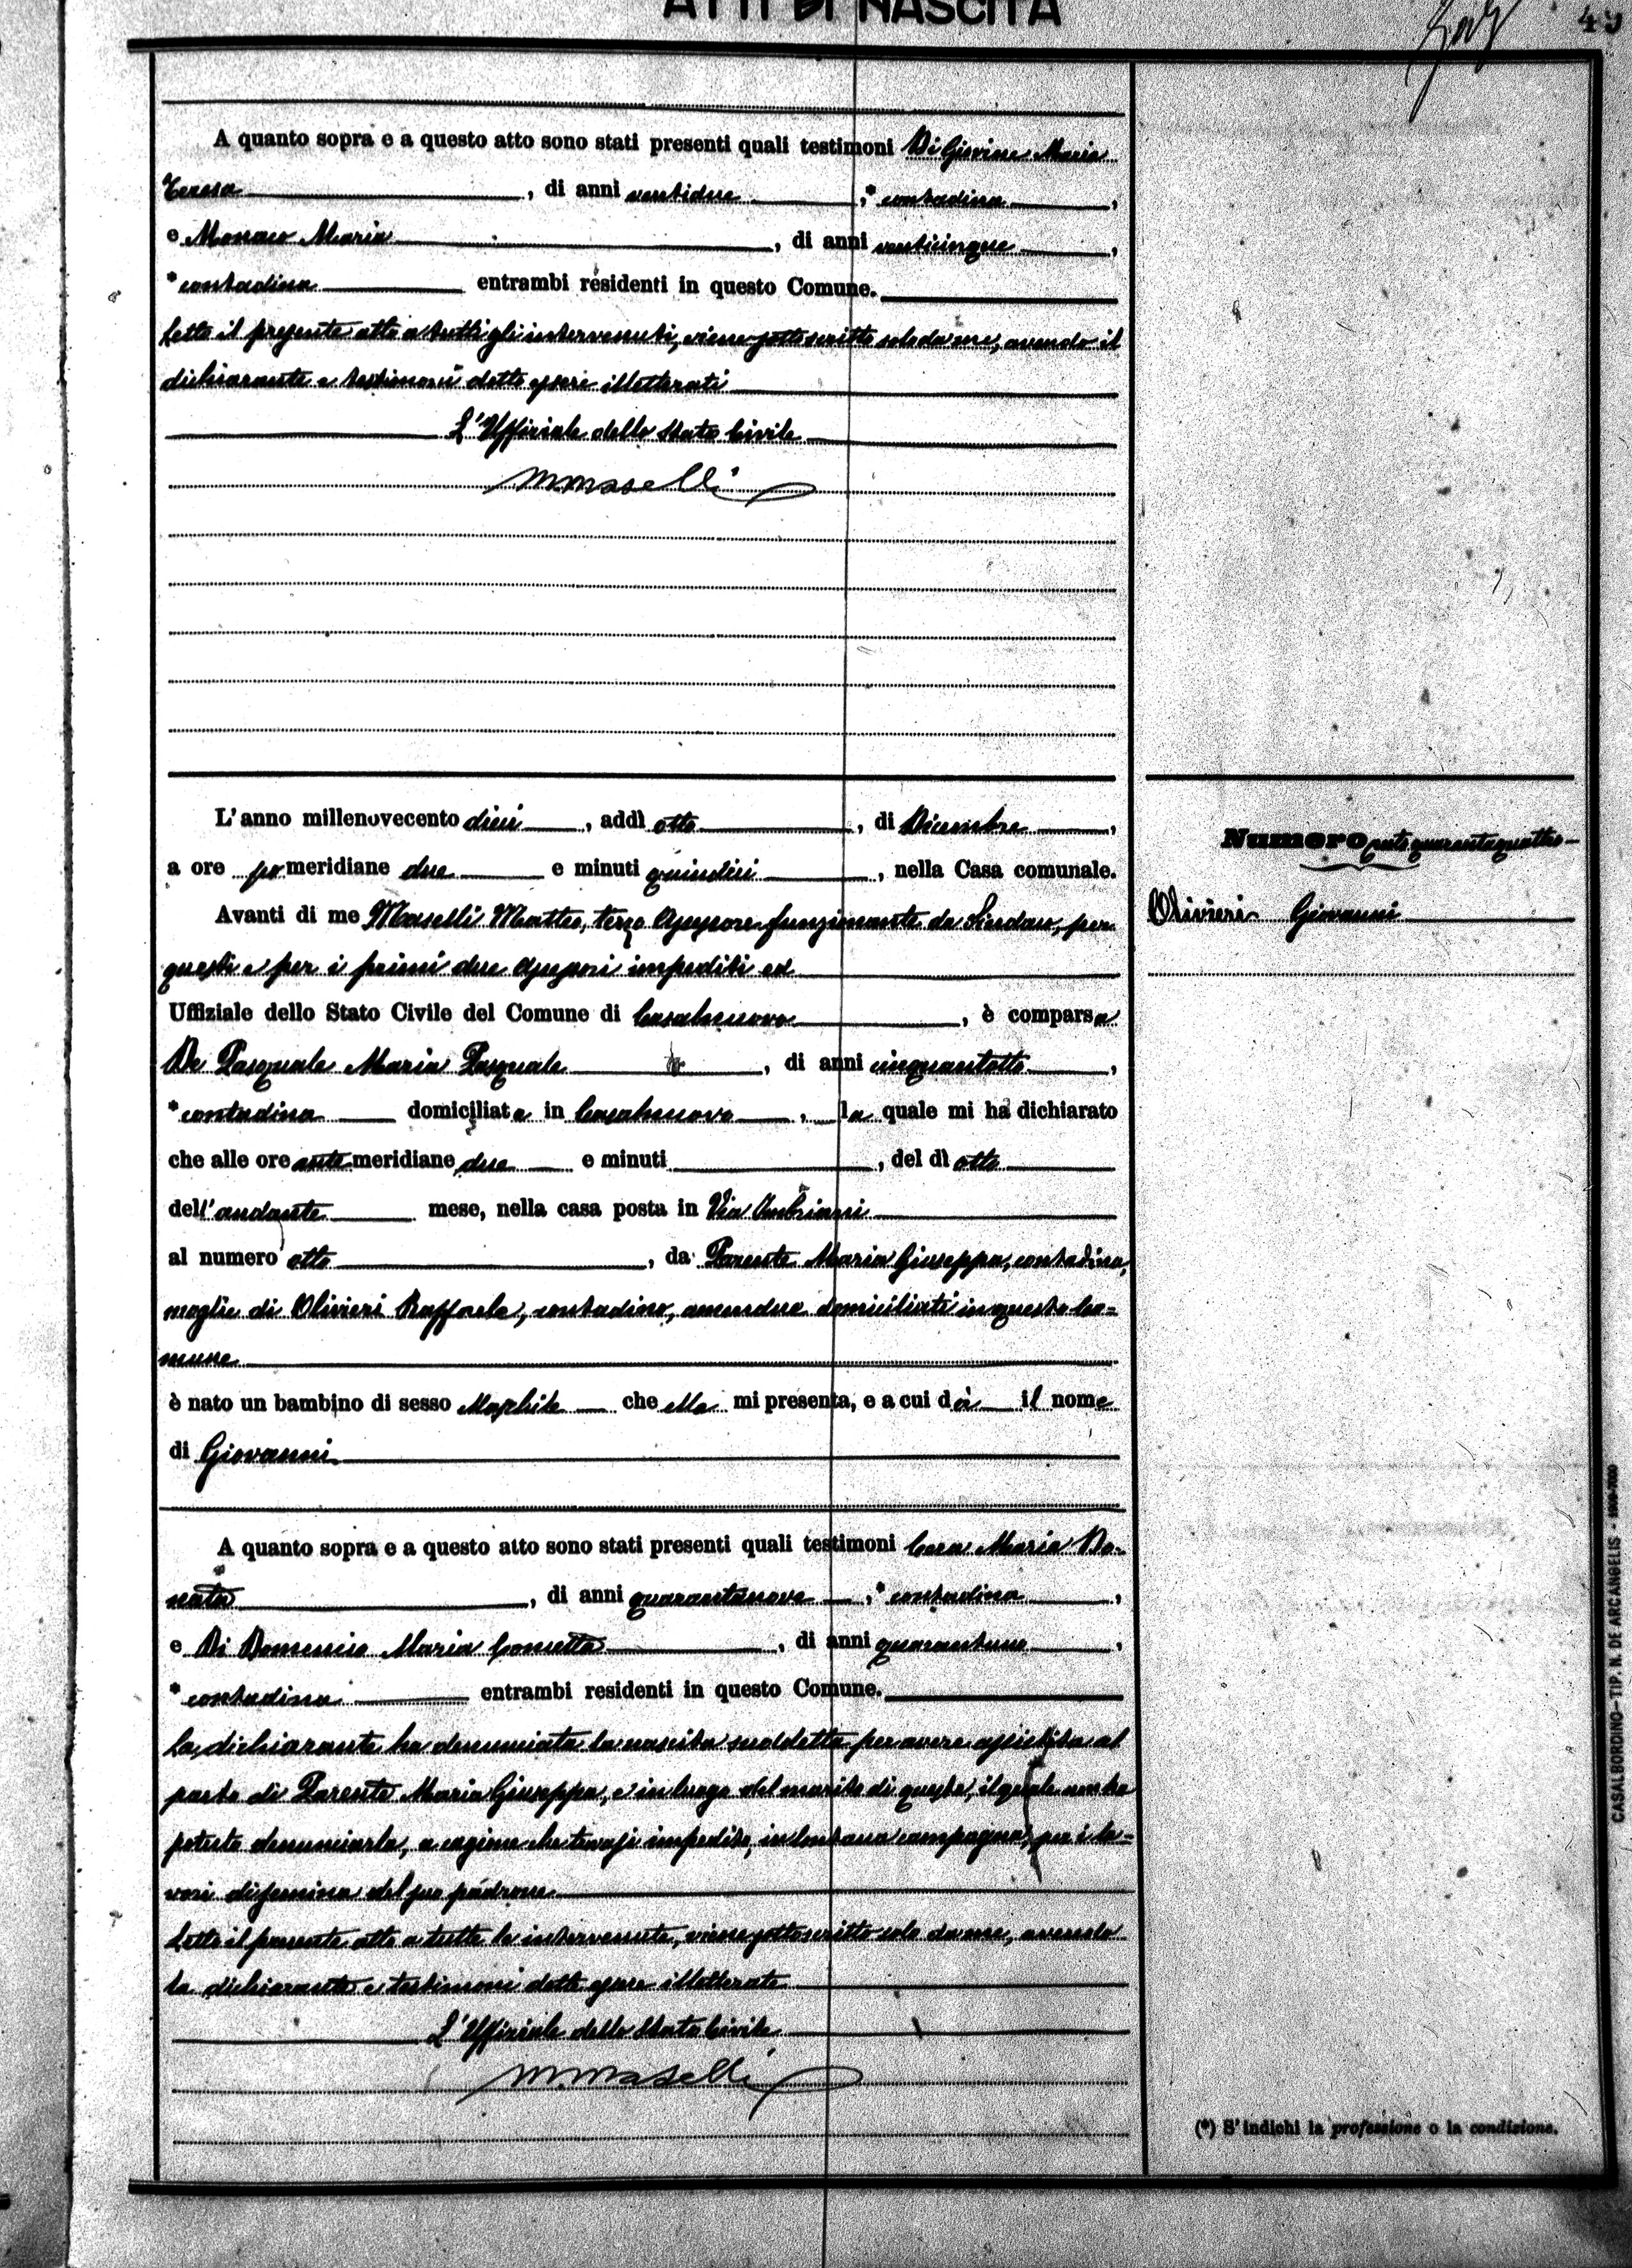 ATTI DI NASCITA
49
A quanto sopra e a questo atto sono stati presenti quali testimoni Di Giovine Maria
Teresa, di anni ventidue, * contadina,
e Monaco Maria, di anni venticinque,
* contadina entrambi residenti in questo Comune.
Letto il presente atto a tutti gli intervenuti, viene sottoscritto solo da me, avendo il
dichiarante e testimoni detto essere illetterati
L'Uffiziale dello Stato Civile
M. Maselli
L'anno millenovecento dieci, addì otto, di Dicembre,
a ore pomeridiane due e minuti quindici, nella Casa comunale.
Avanti di me Maselli Matteo, terzo Assessore funzionante da Sindaco, per
questi e per i primi due Assessori impediti ed
Uffiziale dello Stato Civile del Comune di Casalnuovo, è comparsa
De Pasquale Maria Pasquale, di anni cinquantotto,
* contadina domiciliata in Casalnuovo, la quale mi ha dichiarato
che alle ore antemeridiane due e minuti, del dì otto
dell'andante mese, nella casa posta in Via Imbriani
al numero otto, da Parente Maria Giuseppa, contadina,
moglie di Olivieri Raffaele, contadino, amendue domiciliati in questo Co=
mune
è nato un bambino di sesso Maschile che ella mi presenta, e a cui dà il nome
di Giovanni
A quanto sopra e a questo atto sono stati presenti quali testimoni Cera Maria Do-
nata, di anni quarantanove, * contadina,
e Di Domenico Maria Concetta, di anni quarantuno,
* contadina entrambi residenti in questo Comune.
La dichiarante ha denunciata la nascita suddetta per avere assistita al
parto di Parente Maria Giuseppa, e in luogo del marito di questa, il quale non ha
potuto denunciarla, a cagione che trovasi impedito, in lontana campagna, per i la=
vori di semina del suo padrone
Letto il presente atto a tutte le intervenute, viene sottoscritto solo da me, avendo
la dichiarante e testimoni dette essere illetterate
L'Uffiziale dello Stato Civile
M. Maselli
Numero centoquarantaquattro
Olivieri Giovanni
(*) S'indichi la professione o la condizione.
CASALBORDINO—TIP. N. DE ARCANGELIS